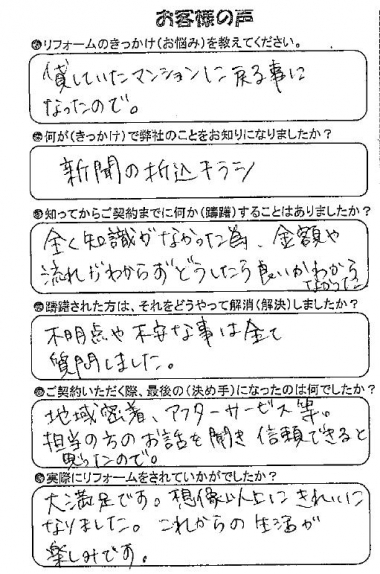 お客様の声
リフォームのきっかけ(お悩み)を教えてください。
貸していたマンションに戻る事に
なったので。
何が(きっかけ)で弊社のことをお知りになりましたか?
新聞の折込チラシ
知ってからご契約までに何か(躊躇)することはありましたか?
全く知識がなかった為、金額や
流れがわからずどうしたら良いかわから
なかった
躊躇された方は、それをどうやって解消(解決)しましたか?
不明点や不安な事は全て
質問しました。
ご契約いただく際、最後の(決め手)になったのは何でしたか?
地域密着、アフターサービス等。
担当の方のお話を聞き信頼できると
思ったので。
実際にリフォームをされていかがでしたか?
大満足です。想像以上にきれいに
なりました。これからの生活が
楽しみです。